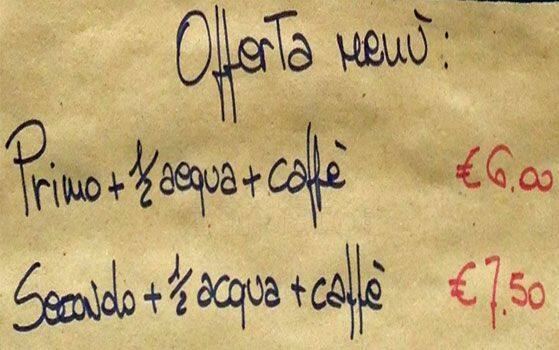 Offerta menù:
Primo + 1/2 acqua + caffè €6.00
Secondo + 1/2 acqua + caffè €7.50